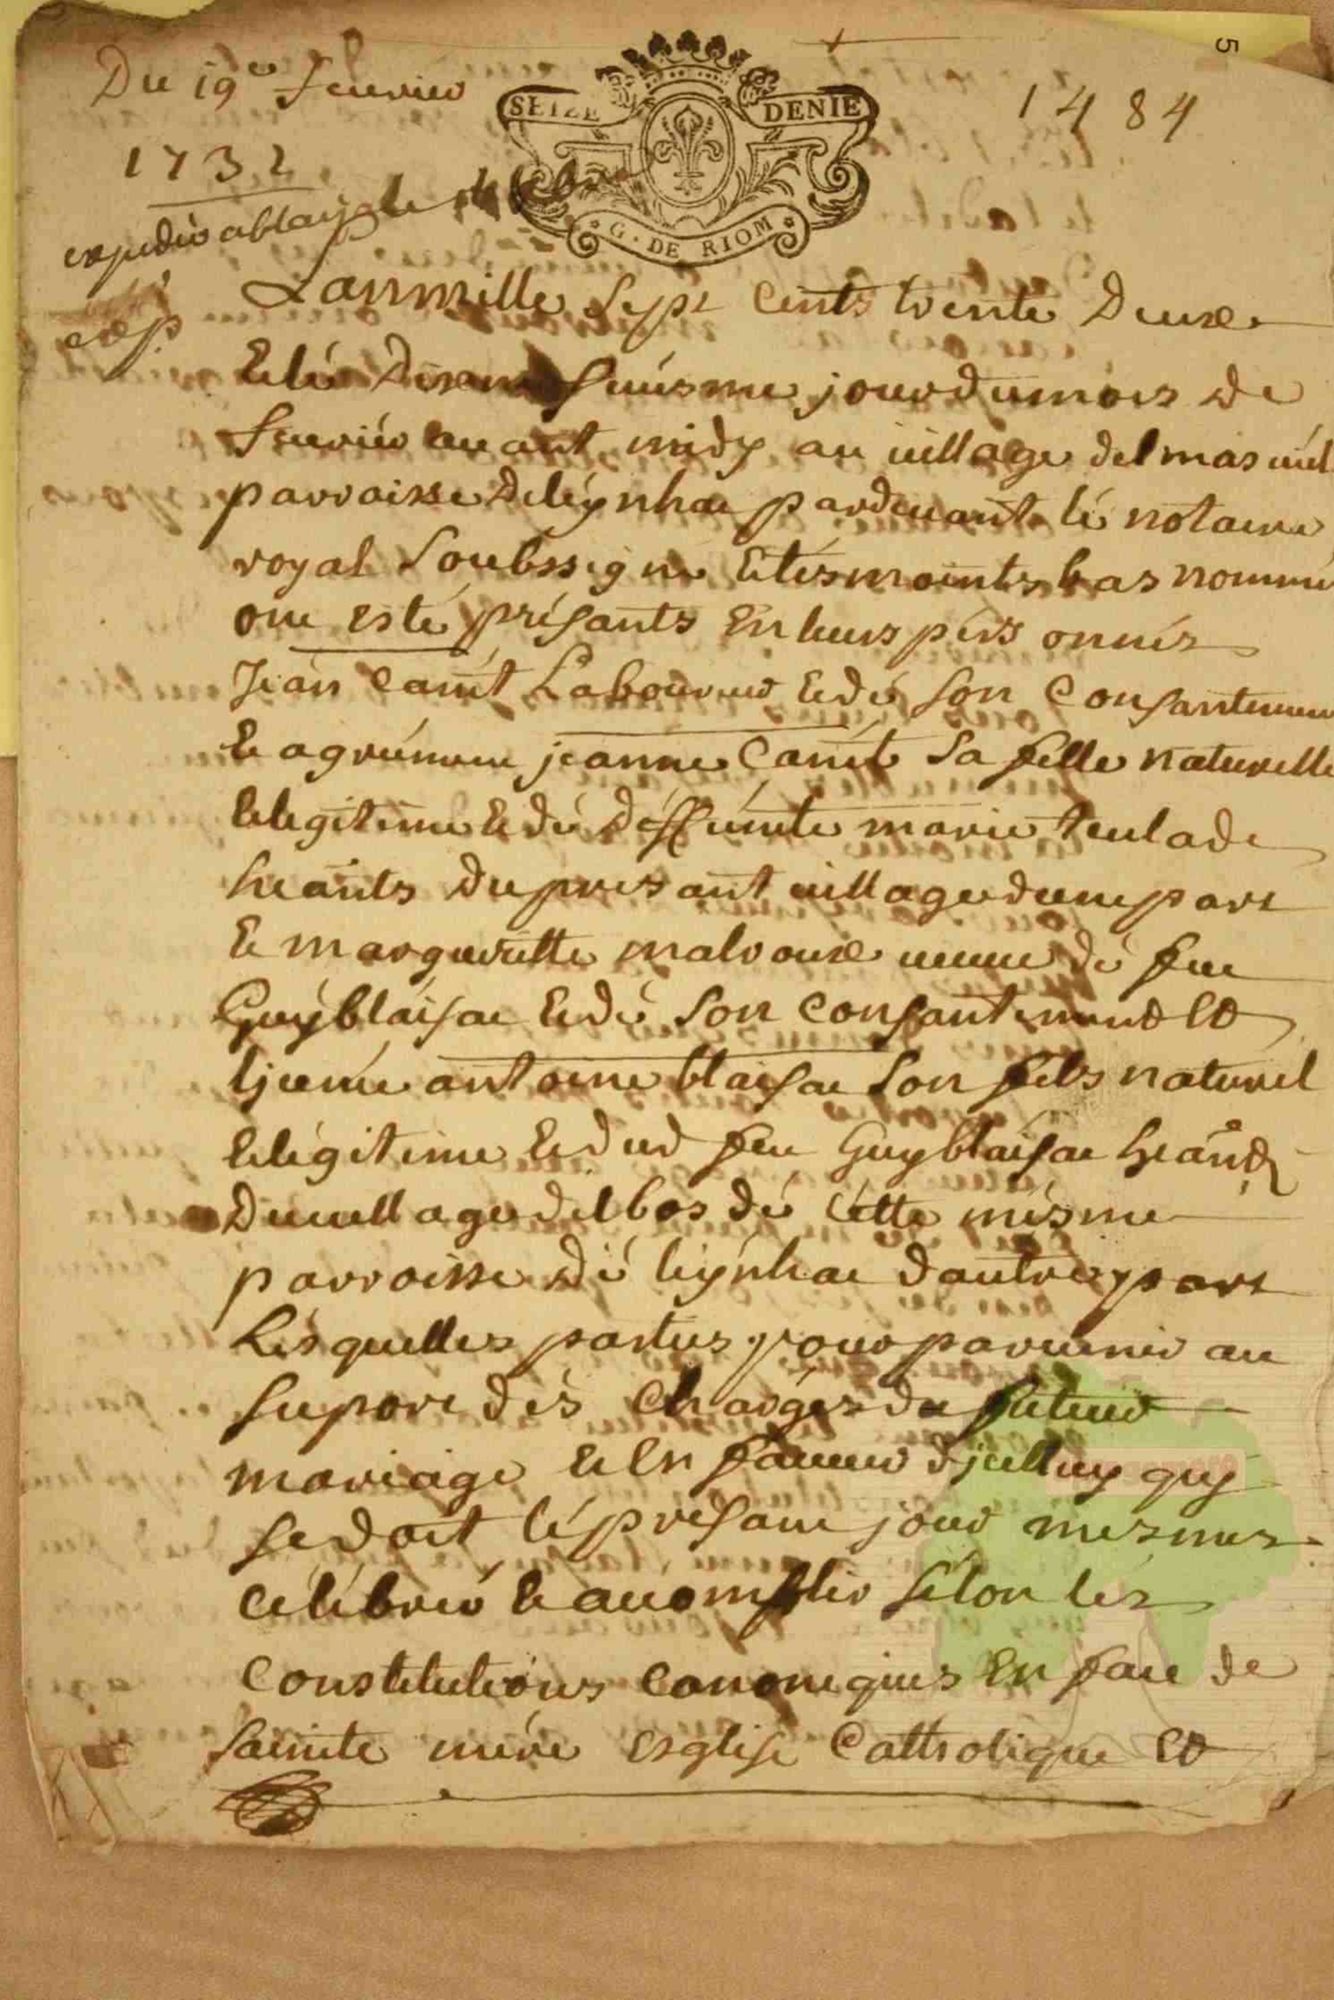 5
Du 19e feurier
1732
1484
SEIZE DENIE
G. DE RIOM
expediè a blaize le
exp
Lanmille sept cents trente deux
Et lé dixneufuiesme jour du mois de
feurier auant midy au uillage delmasuiel
parroisse deleynhac pardeuant lé notaire
royal soubssigné et tésmoints bas nommé
ont esté présants en leurs pérsonnés
Jean Canét Laboureur et dé son Consantement
et agrément jeanne Canét sa fille naturelle
et legitime et dé déffuinte marie teulade
heants du presant uillage dune part
et margueritte malroux ueuue dé feu
Guÿ blaisac et dé son consantement et
ljcence antoine blaisac son fils naturel
et légitime et dud feu Guy blaisac heants
du uillage delbos dé cétte mésme
parroisse dé léynhac dautre part
Lésquelles partiés pour paruenir au
suport dés chargés du futur
mariage et en faueur djcelluy quÿ
se doit lé présant jour mesmes
célébrér et accomplir sélon lés
constitutions canoniques en face de
sainte mére esglise Catholique et